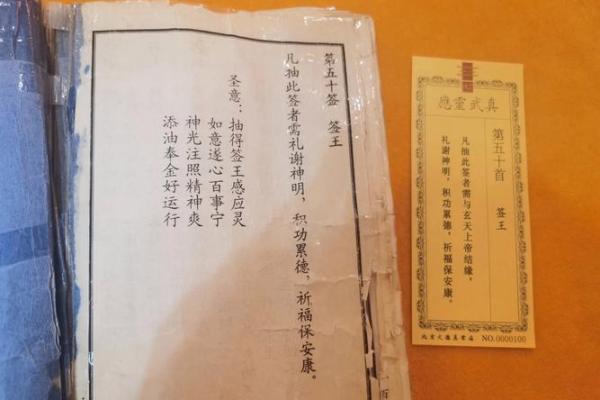 第五十签 签王
凡抽此签者需礼谢神明，积功累德，祈福保安康。
圣意：抽得签王感应灵
如意遂心百事宁
神光注照精神爽
添油奉金好运行
真武靈應
第五十首 签王
凡抽此签者需与玄天上帝结缘，
礼谢神明，积功累德，祈福保安康。
北京火德真君庙 NO.0000100